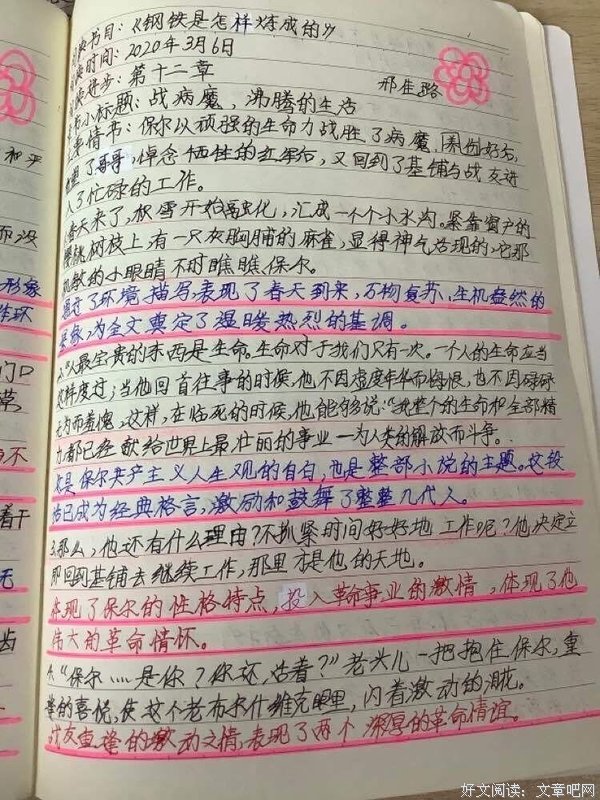 书目：《钢铁是怎样炼成的》
时间：2020年3月6日
进步：第十二章
小标题：战病魔，沸腾的生活
事情书：保尔以顽强的生命力战胜了病魔
了哥哥，悼念牺牲的红军后，又回到了基铺与战友进
入了忙碌的工作。
春天来了，积雪开始融化，汇成一个个小水沟。紧靠窗户的
樱桃树枝上，有一只灰胸脯的麻雀，显得神气活现的，它那
机敏的小眼睛不时瞧瞧保尔。
通过了环境描写，表现了春天到来，万物复苏，生机盎然的
景象，为全文奠定了温暖热烈的基调。
2."人最宝贵的东西是生命。生命对于我们只有一次。一个人的生命应当
这样度过：当他回首往事的时候，他不因虚度年华而悔恨，也不因碌碌
无为而羞愧，这样，在临死的时候，他能够说："我整个的生命和全部精
力都已经献给世界上最壮丽的事业—为人类的解放而斗争。
这是保尔共产主义人生观的自白，也是整部小说的主题。这段
话已成为经典格言，激励和鼓舞了整整几代人。
3.那么，他还有什么理由？不抓紧时间好好地工作呢？他决定立
即回到基铺去继续工作，那里才是他的天地。
体现了保尔的性格特点，投入革命事业的激情，体现了他
伟大的革命情怀。
4."保尔....是你？你还活着？"老头儿一把抱住保尔，重
逢的喜悦，使这个老布尔什维克眼里，闪着激动的泪花。
战友重逢的激动之情，表现了两个深厚的革命情谊。
和平
而没
形象
作环
门口
常
不
看干
无
齿
好文阅读：文章吧网